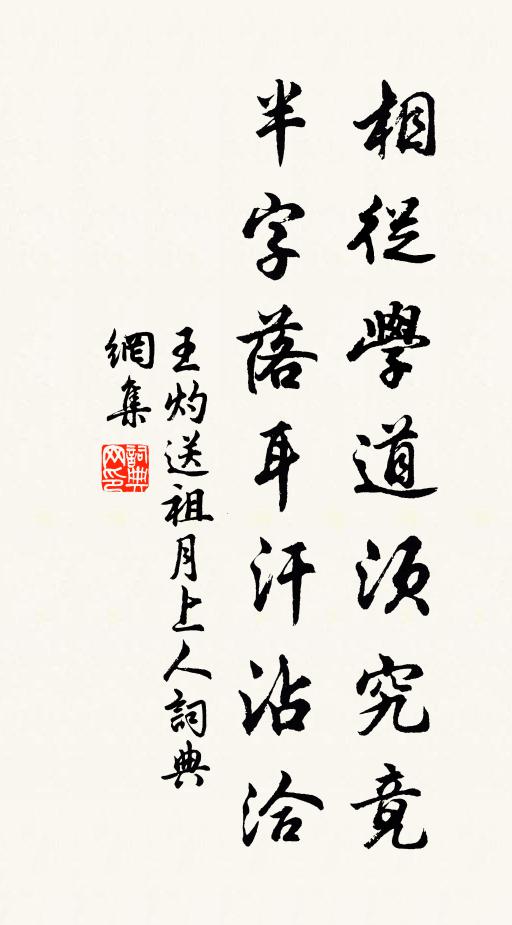 相從學道須究竟
半字落耳汗沾洽
王灼送祖月上人詞典
網集
詞典
网印